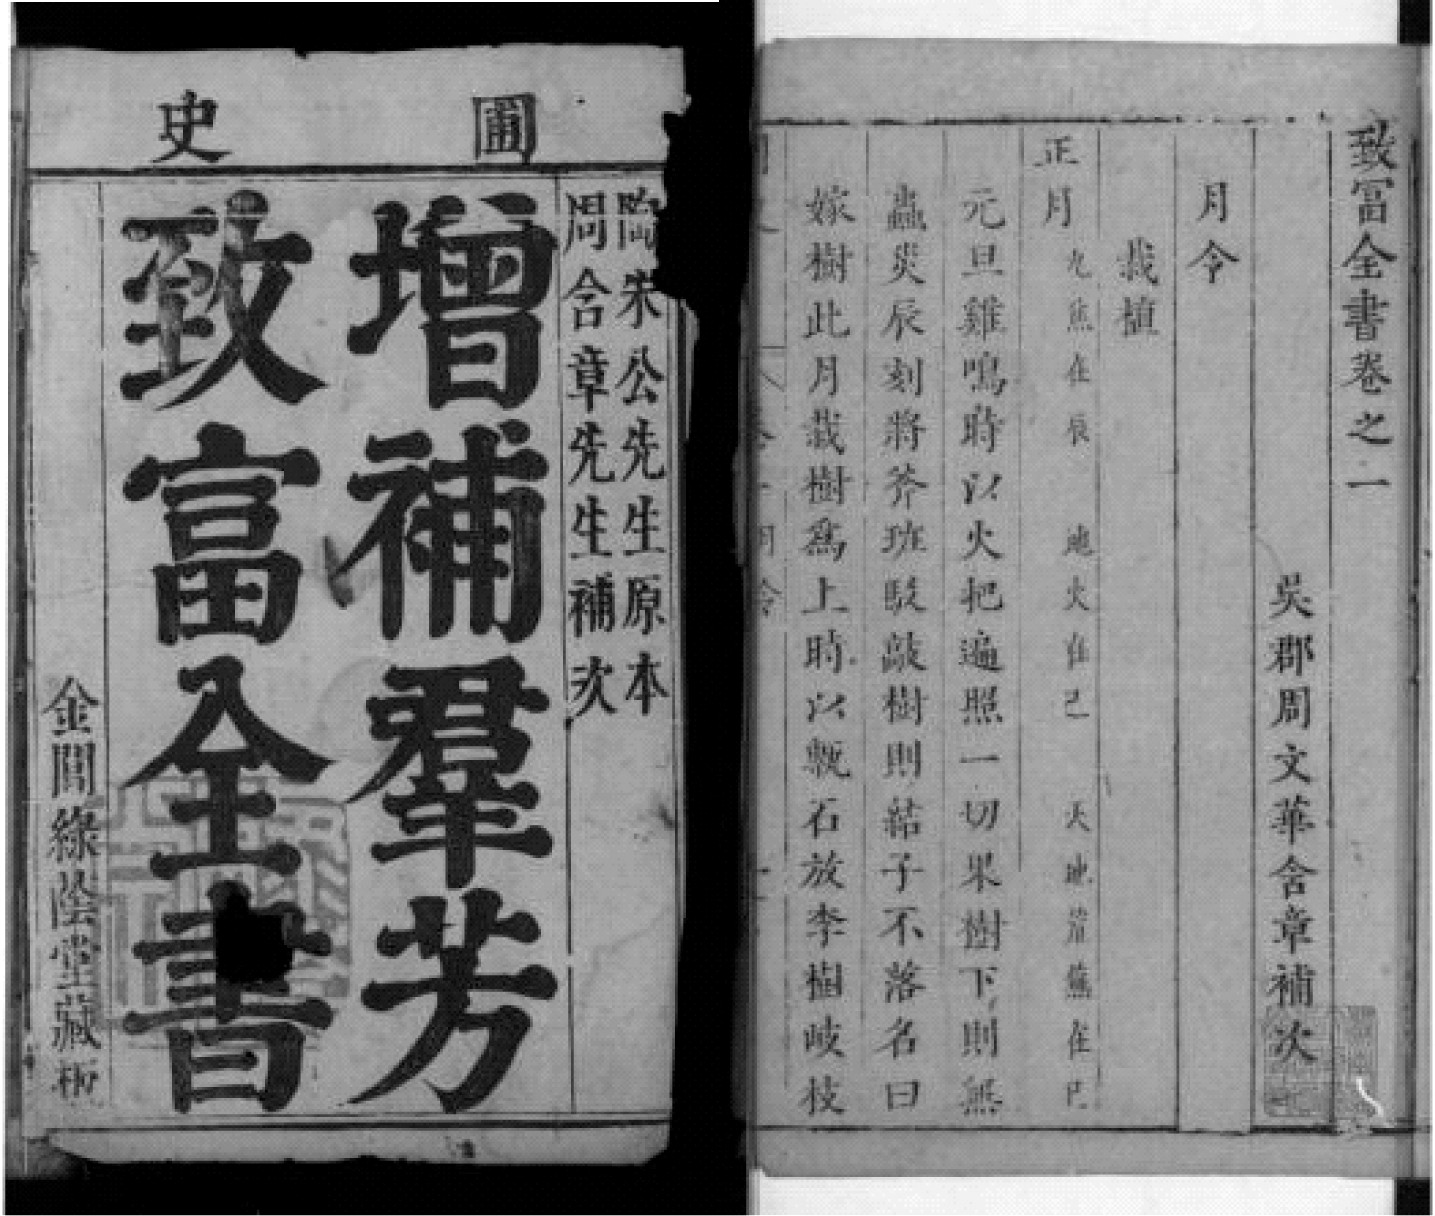 圃史
陶朱公先生原本
周含章先生補次
增補羣芳
致富全書
金閶綠蔭堂藏板
致富全書卷之一
吳郡周文華含章補次
月令
栽植
正月 九焦在辰 地火在巳 天地荒蕪在巳
元旦雞鳴時以火把遍照一切果樹下則無
蟲災辰刻將斧班駁敲樹則結子不落名曰
嫁樹此月栽樹爲上時以甎石放李樹岐枝